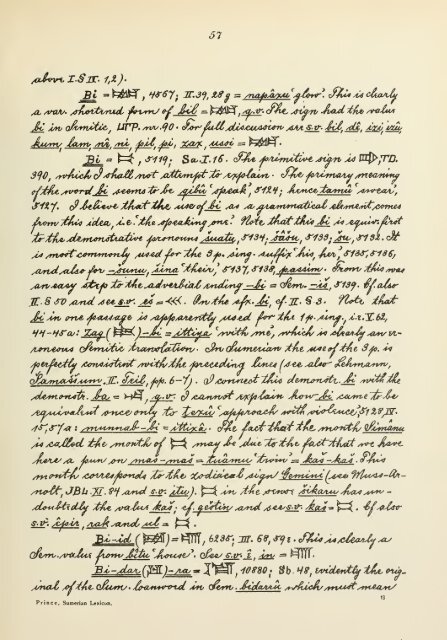 57
above I. § IX. 1,2).
Bi = , 4567; II. 39, 28 g = napâxu 'glow'. This is clearly
a var. shortened form of bil = , q.v. The sign had the value
bi in Semitic, nr. 90. For full discussion see s.v. bil, dê, izi,
kum, lam, nê, ni, pil, pi, zax, ussi = .
Bi = , 5119; Sa. I. 16. The primitive sign is , TD.
390, which I shall not attempt to explain. The primary meaning
of the word bi seems to be qibû 'speak', 5124; hence tamû 'swear',
5127. I believe that the use of bi as a grammatical element, comes
from this idea, i.e. 'the speaking one'. Note that this bi is equiv. first
to the demonstrative pronouns šuatu, 5134; šâšu, 5133; šu, 5132. It
is most commonly used for the 3 p. sing. suffix 'his, her', 5135, 5136,
and also for -šunu, šina 'their', 5137, 5138, passim. From this was
an easy step to the adverbial ending -bi = Sem. -iš, 5139. Cf. also
II. § 50 and see s.v. eš = <<<. On the sfx. bi, cf. II. § 3. Note that
bi in one passage is apparently used for the 1 p. sing., i.e. V. 62,
44-45 a: zag ( )-bi = ittiya 'with me', which is clearly an er-
roneous Semitic translation. In Sumerian the use of the 3 p. is
perfectly consistent with the preceding lines (see also Lehmann,
Šamaššum. II. Teil, pp. 6-7). I connect this demonstr. bi with the
demonstr. ba = , q.v. I cannot explain how bi came to be
equivalent once only to texû 'approach with violence', 5128, IV.
15, 57 a: munnab-bi = ittixê. The fact that the month Simânu
is called the month of may be due to the fact that we have
here a pun on maš-maš = tuâmu 'twin' = kaš-kaš. This
month corresponds to the zodiacal sign Gemini (see Muss-Ar-
nolt, JBL. XI. 84 and s.v. itu). in the sense šikaru has un-
doubtedly the value kaš; cf. geštin and see s.v. kaš = . Cf. also
s.v. and ul = .
Bi-id ( ) = , 6235; III. 68, 59 c. This is clearly a
Sem. value from bîtu 'house'. See s.v. ê, in = .
Bi-dar ( )-ra = , 10880; Sb. 48, evidently the orig-
inal of the Sum. loanword in Sem. bidarrû which must mean
Prince, Sumerian Lexicon.